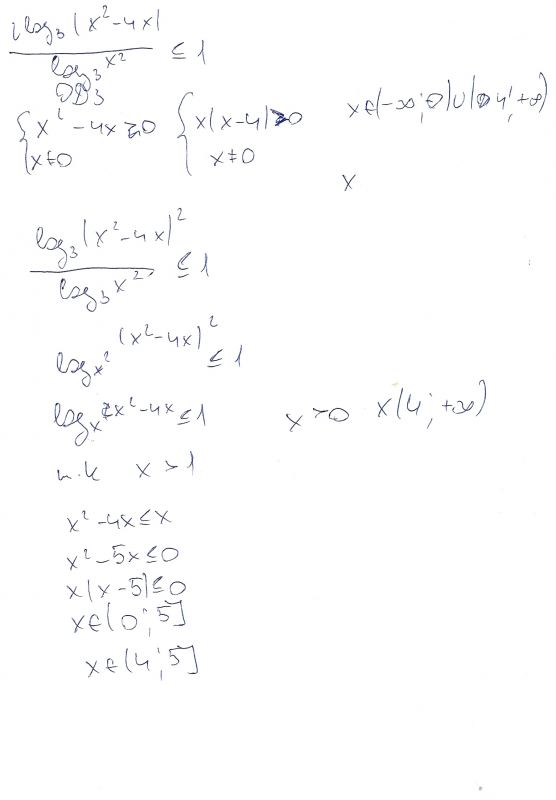 2log₃(x²-4x)
───────── ≤ 1
log₃x²
ОДЗ
{x²-4x>0 {x(x-4)>0 x∈(-∞;0)∪(4;+∞)
{x≠0 {x≠0
x
log₃(x²-4x)²
───────── ≤ 1
log₃x²
log_{x²}(x²-4x)² ≤ 1
log_x x²-4x ≤ 1 x>0 x(4;+∞)
т.к x>1
x²-4x≤x
x²-5x≤0
x(x-5)≤0
x∈(0;5]
x∈(4;5]